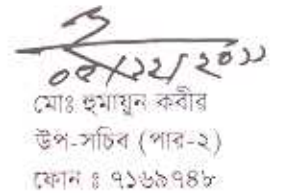 ০৫/১২/২০১১
মোঃ হুমায়ুন কবীর
উপ-সচিব (পার-২)
ফোন ঃ ৭১৬৯৭৪৮